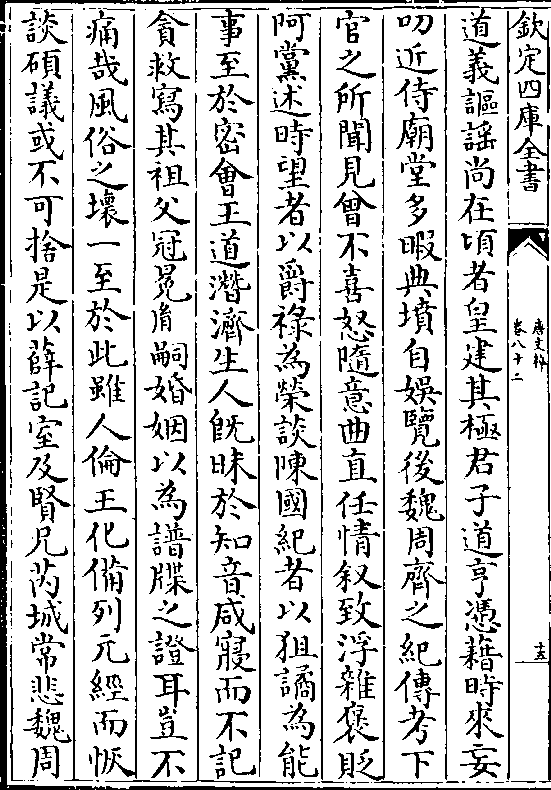 欽定四庫全書
唐文粹
卷八十二
十五
道義謳謡尚在頃者皇建其極君子道亨憑藉時來妄
叨近侍廟堂多暇典墳自娛覽後魏周齊之紀傳考下
官之所聞見曾不喜怒隨意曲直任情叙致浮雜襃貶
阿黨述時望者以爵祿為榮談陳國紀者以狙譎為能
事至於密會王道潛濟生人旣昧於知音咸寢而不記
貪救寫其祖父冠冕㣧嗣婚姻以為譜牒之證耳豈不
痛哉風俗之壞一至於此雖人倫王化備列元經而恢
談碩議或不可捨是以薛記室及賢兄芮城常悲魏周